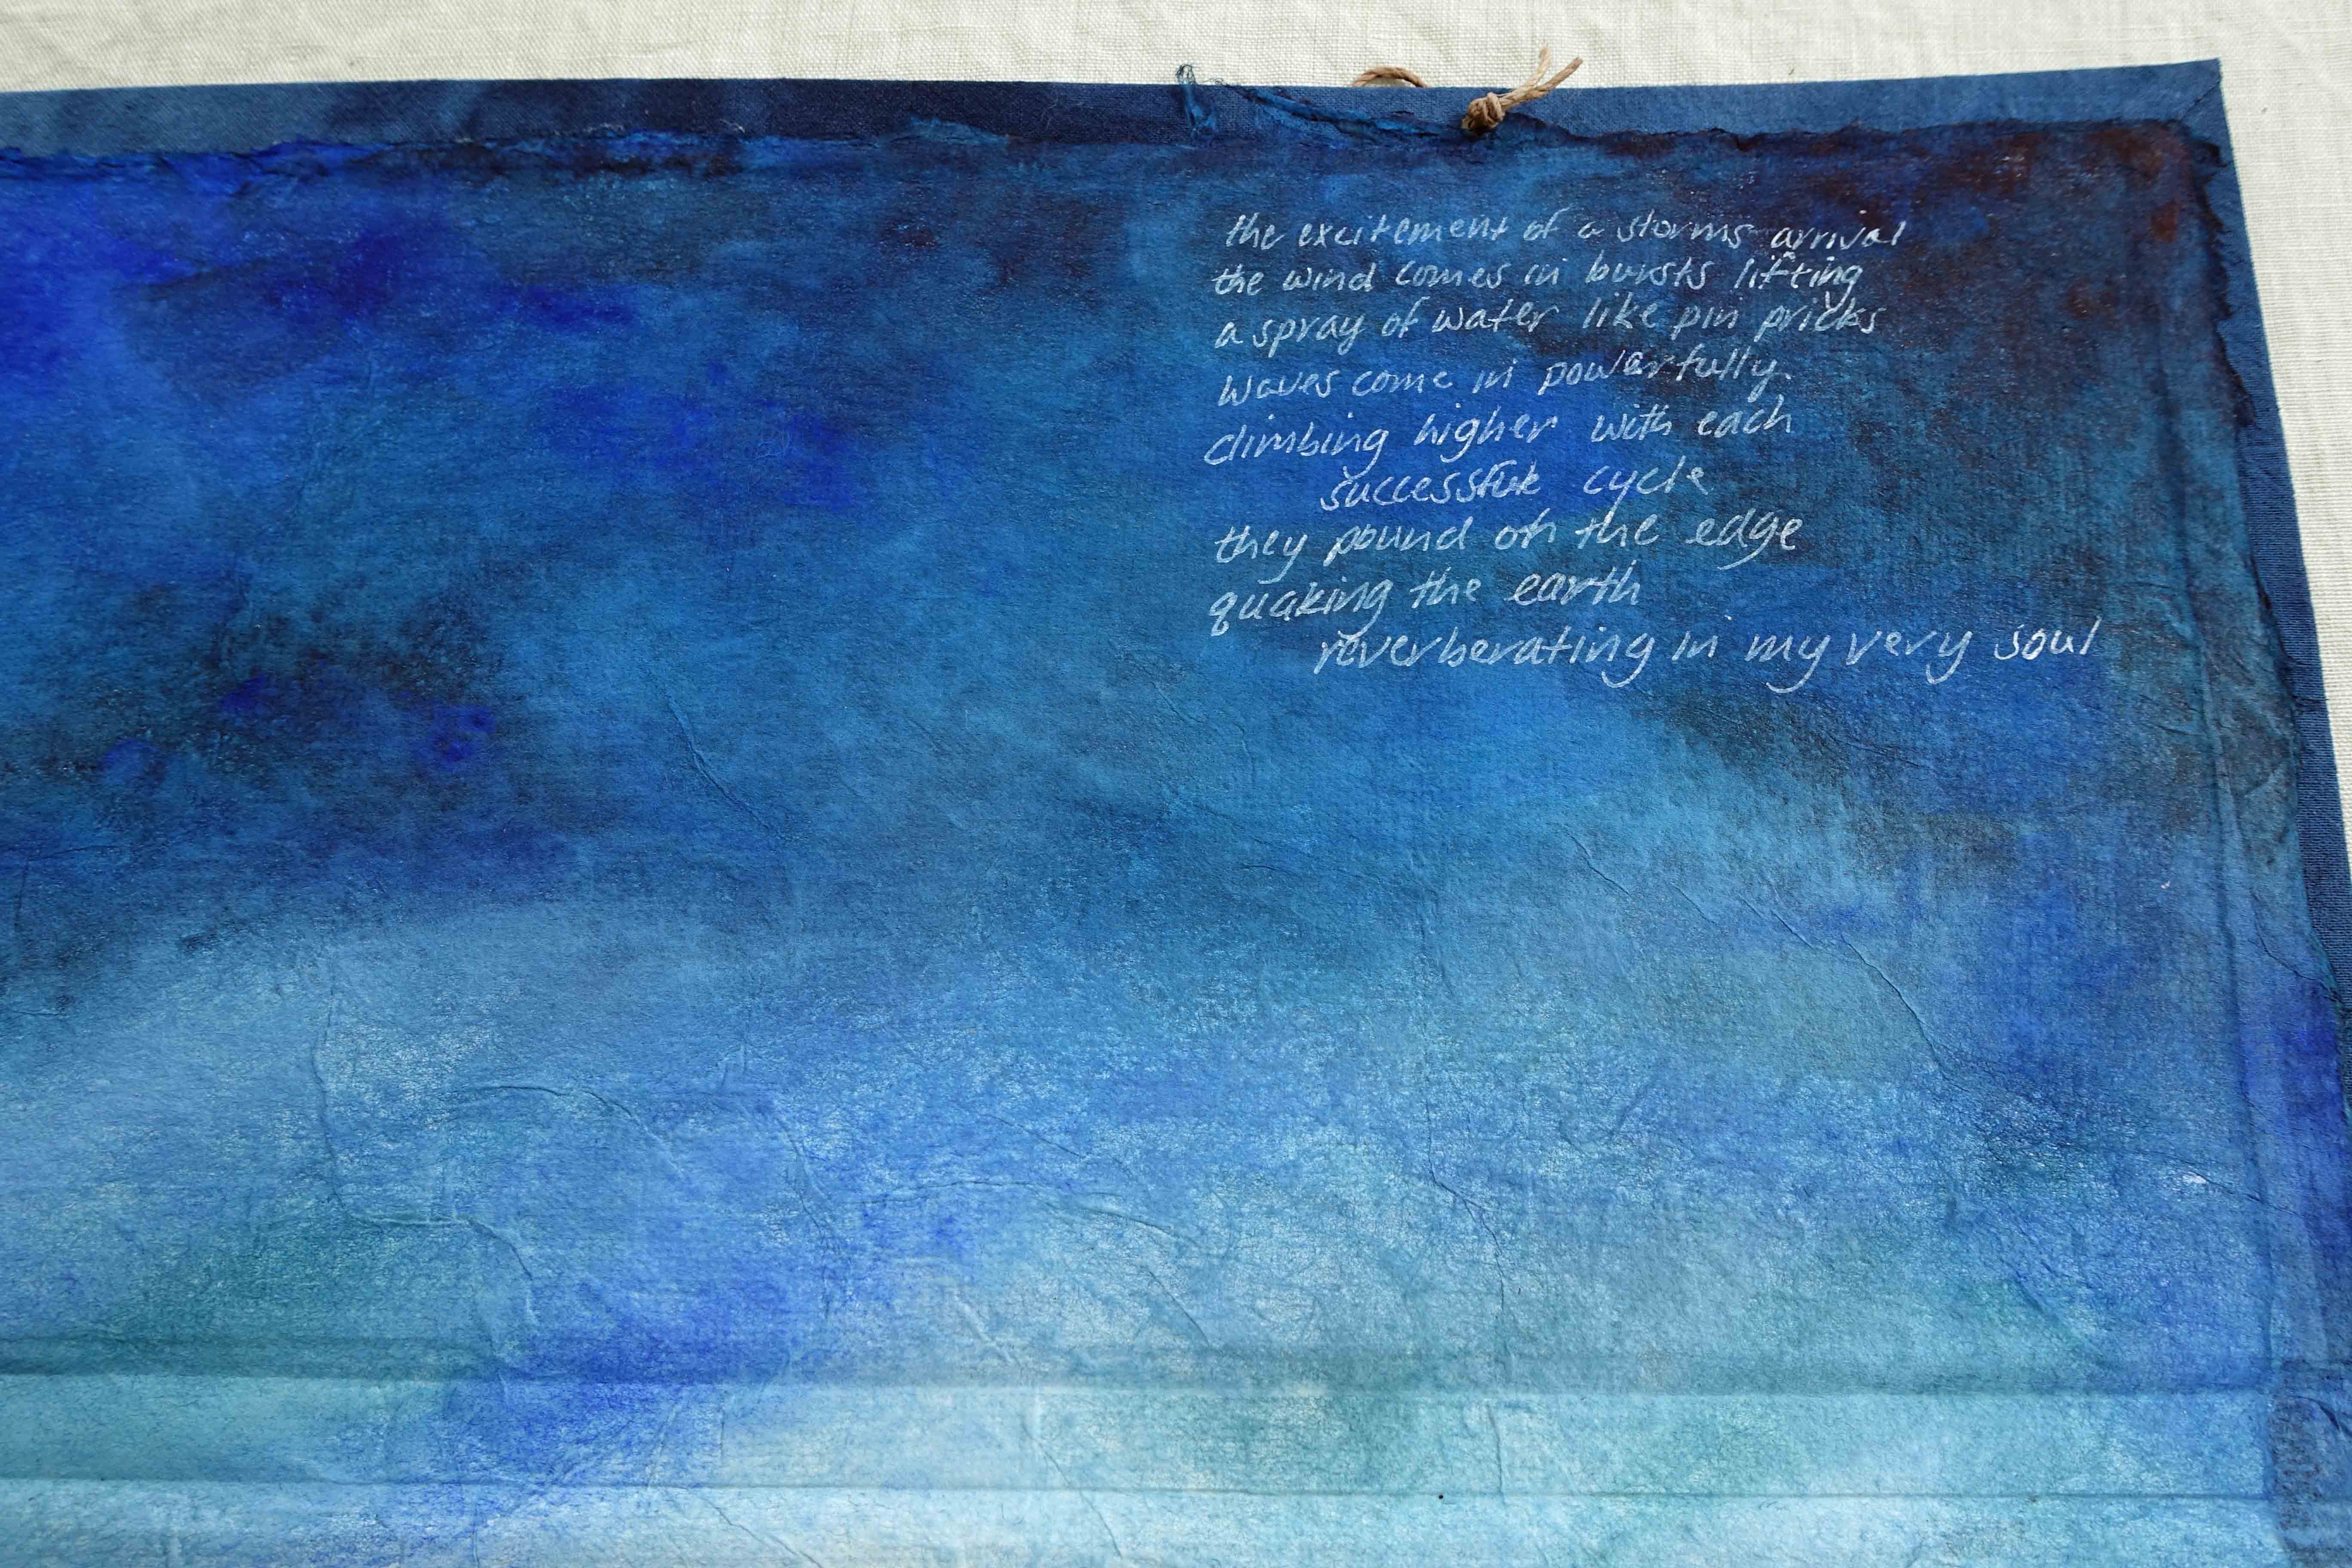 the excitement of a storms arrival
the wind comes in bursts lifting
a spray of water like pin pricks
waves come in powerfully.
climbing higher with each
successful cycle
they pound on the edge
quaking the earth
reverberating in my very soul